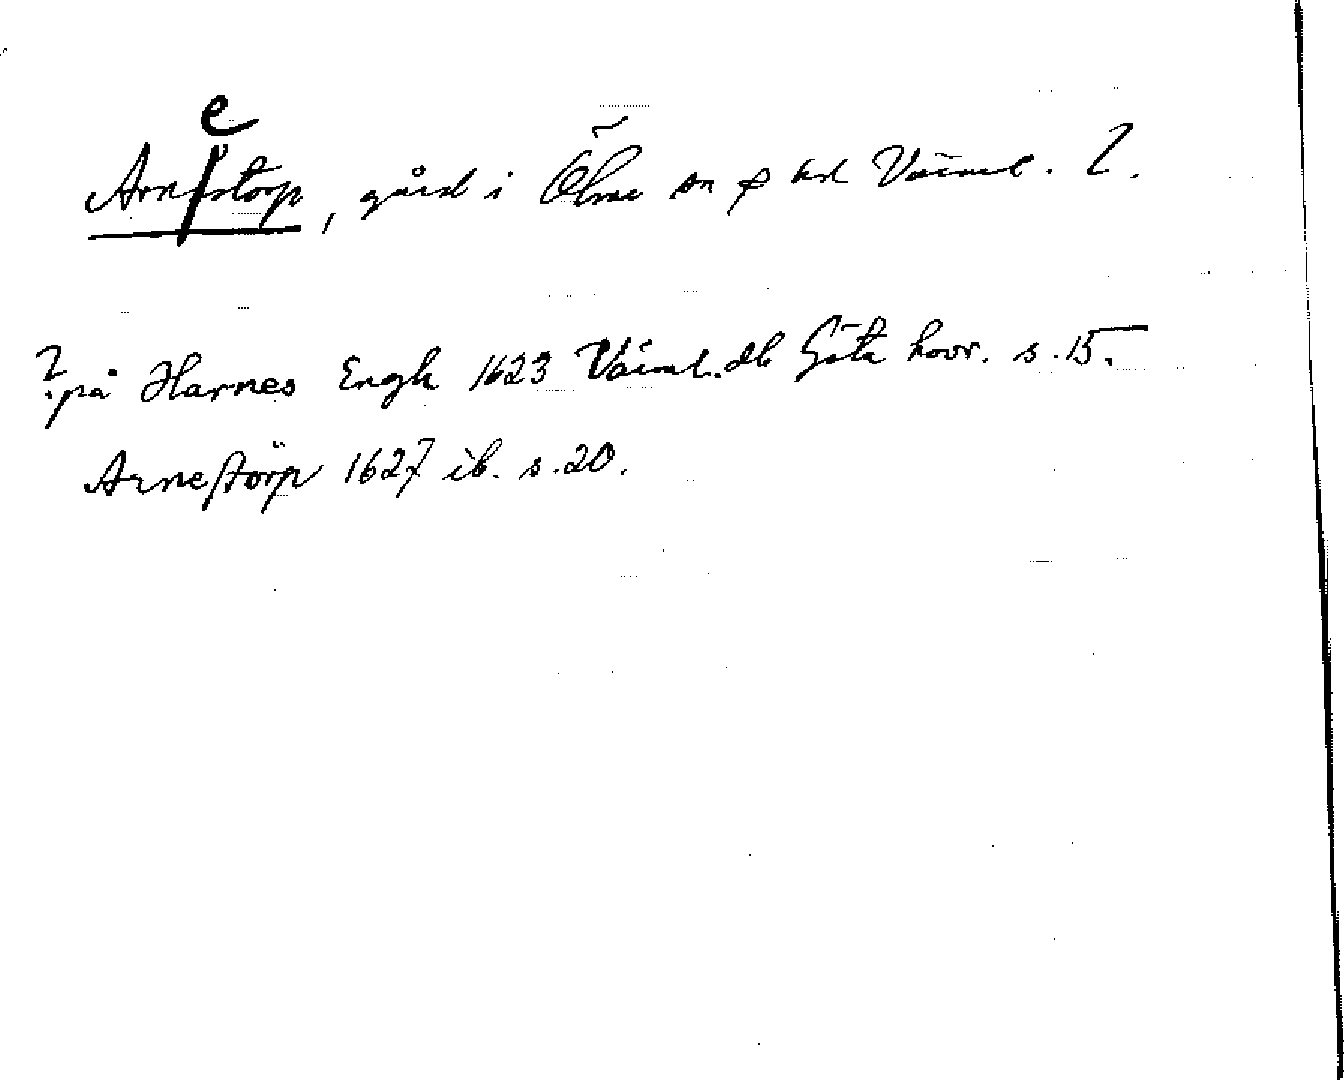 Arnestorp, gård i Ölme sn o hd Värml. L.
? på Harnes Engh 1623 Värml. db Göta hovr. s. 15.
Arnestörp 1627 ib. s. 20.